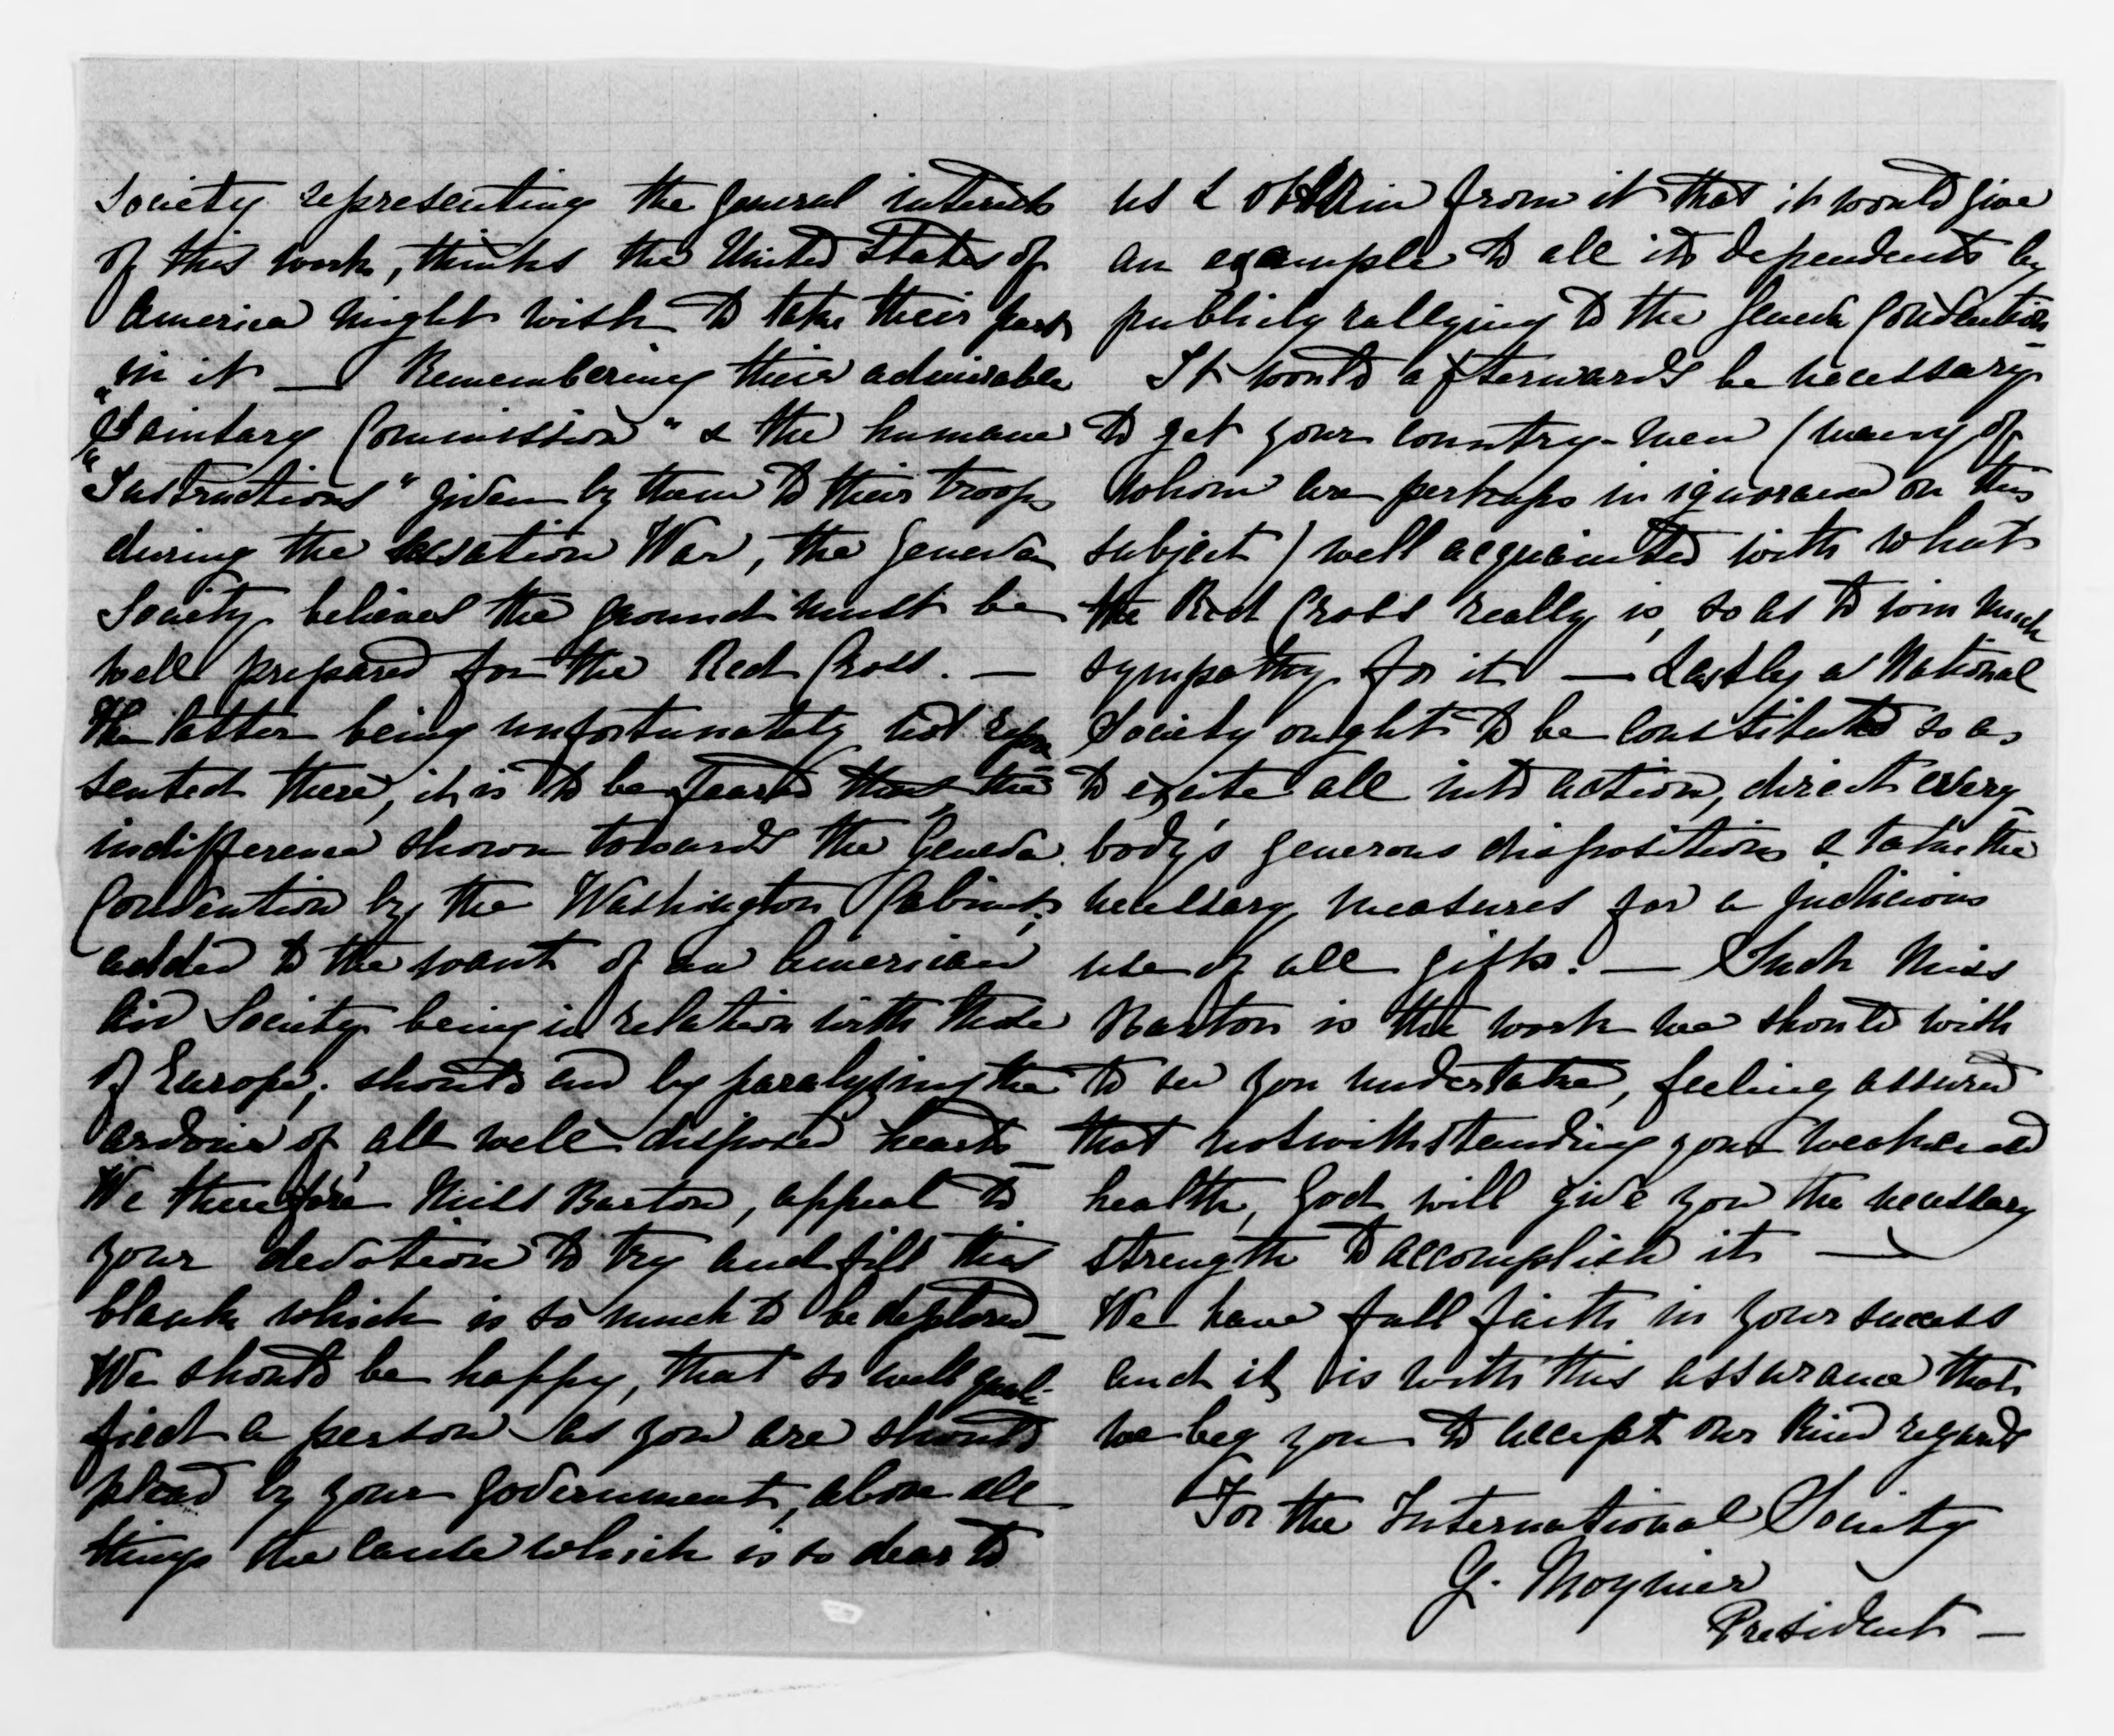 Society representing the general interests
of this work, thinks the United States of
America might wish to take their part
in it — Remembering their admirable
"Sanitary Commission" & the humane
"Instructions" given by them to their troops
during the secession War, the Geneva
Society believes the ground must be
well prepared for the Red Cross. —
The latter being unfortunately not repre
sented there, it is to be feared that the
indifference shown towards the Geneva
Convention by the Washington Cabinet,
added to the want of an American
Aid Society being in relation with those
of Europe, should end by paralyzing the
ardour of all well disposed hearts —
We therefore Miss Barton, appeal to
your devotion to try and fill this
blank which is so much to be deplored —
We should be happy, that so well quali-
fied a person as you are should
plead by your government, above all
things the cause which is so dear to
us & obtain from it that it would give
an example to all its dependents by
publicly rallying to the Geneva Convention —
It would afterwards be necessary
to get your country-men (many of
whom are perhaps in ignorance on this
subject) well acquainted with what
the Red Cross really is, so as to win much
sympathy for it — Lastly a National
Society ought to be constituted so as
to excite all into action, direct every
body's generous dispositions & take the
necessary measures for a judicious
use of all gifts. — Such Miss
Barton is the work we should wish
to see you undertake, feeling assured
that notwithstanding your weakened
health, God will give you the necessary
strength to accomplish it —
We have full faith in your success
and it is with this assurance that
we beg you to accept our kind regards
For the International Society
G. Moynier
President —